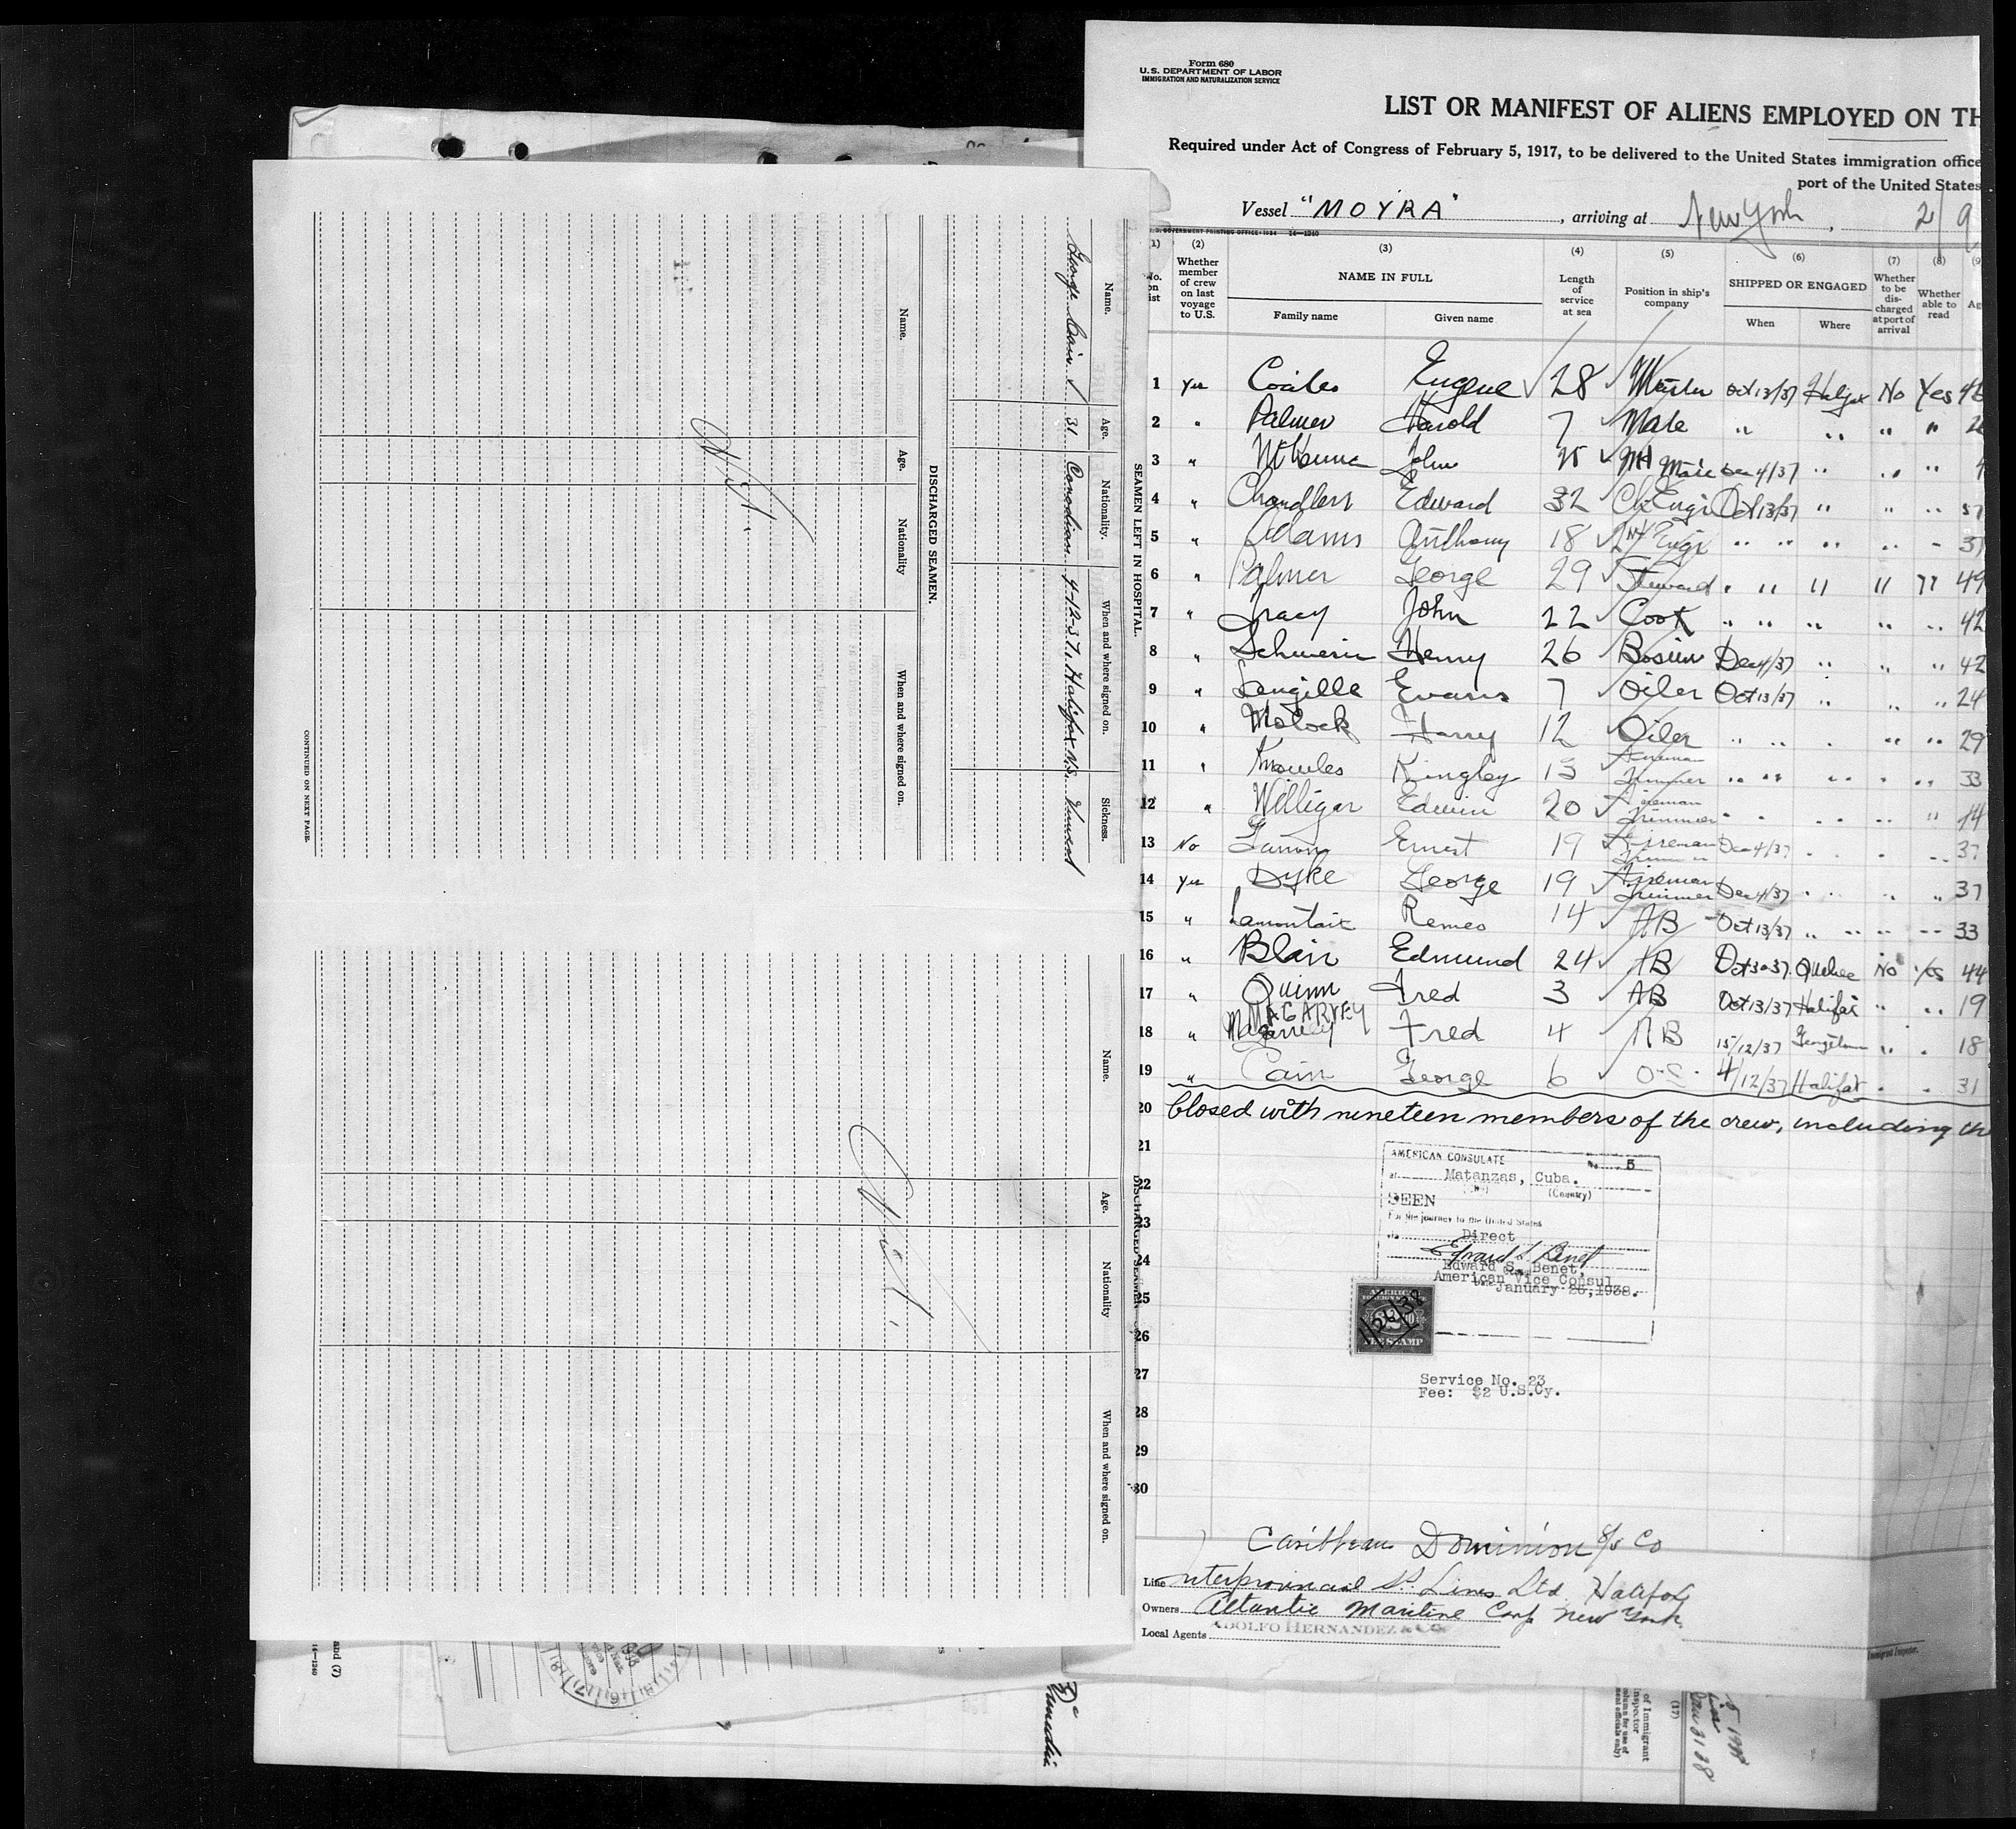 Form 680
U. S. DEPARTMENT OF LABOR
IMMIGRATION AND NATURALIZATION SERVICE
LIST OR MANIFEST OF ALIENS EMPLOYED ON TH
Required under Act of Congress of February 5, 1917, to be delivered to the United States immigration office
port of the United States
Vessel "MOYRA", arriving at New York, 2/9
U.S. GOVERNMENT PRINTING OFFICE: 1934 14—1240
(1) (2) (3) (4) (5) (6) (7) (8) (9
No. on list Whether member of crew on last voyage to U.S. NAME IN FULL Family name Given name Length of service at sea Position in ship's company SHIPPED OR ENGAGED When Where Whether to be discharged at port of arrival Whether able to read Ag
1 Yes Coates Eugene 28 Master Oct 13/37 Halifax No Yes
2 " Palmer Harold 7 Mate " " " "
3 " John Dec 4/37 " " "
4 " Chandlers Edward 32 Ch. Engr Oct 13/37 " " " 57
5 " Adams Anthony 18 2nd Engr " " " " " 3
6 " Palmer George 29 Steward " " " " " 49
7 " Tracy John 22 Cook " " " " " 42
8 " Schwerin Henry 26 Bosun Dec 4/37 " " " 42
9 " Langille Evans 7 Oiler Oct 13/37 " " " 24
10 " Harry 12 Oiler " " " " " 29
11 " Knowles Kingley 13 Fireman Trimmer " " " " " 33
12 " Williger Edwin 20 Fireman Trimmer " " " " 44
13 No Ernest 19 Fireman Trimmer Dec 4/37 " " " 37
14 Yes Dyke George 19 Fireman Trimmer Dec 4/37 " " " 37
15 " Remeo 14 AB Oct 13/37 " " " 33
16 " Blair Edmund 24 AB Oct 30 37 Quebec No Yes 44
17 " Quinn Fred 3 AB Oct 13/37 Halifax " " 19
MAGARVEY
18 " Magarvey Fred 4 AB 15/12/37 Georgetown " " 18
19 " Cain George 6 O.S. 4/12/37 Halifax " " 31
20 Closed with nineteen members of the crew, including th
21
22
23
24
25
26
27
28
29
30
AMERICAN CONSULATE No. 5
at Matanzas, Cuba.
(City) (Country)
SEEN
For the journey to the United States
via Direct
Edward S. Benet
Edward S. Benet,
American Vice Consul
January 26, 1938.
1/26/38
FEE STAMP
Service No. 23
Fee: $2 U.S.Cy.
Caribbean Dominion S/S Co
Line Interprovincial SS. Lines Ltd Halifax
Owners Atlantic Maritime Corp New York
Local Agents ADOLFO HERNANDEZ & CO.
Immigrant Inspector.
SEAMEN LEFT IN HOSPITAL.
Name. Age. Nationality. When and where signed on. Sickness.
George Cain 31 Canadian 4-12-37, Halifax N.S.
DISCHARGED SEAMEN.
Name. Age. Nationality When and where signed on.
Nil.
CONTINUED ON NEXT PAGE.
DISCHARGED SEAMEN
Name. Age. Nationality When and where signed on.
Nil.
and (7)
14—1240
(17)
of Immigrant
Inspector